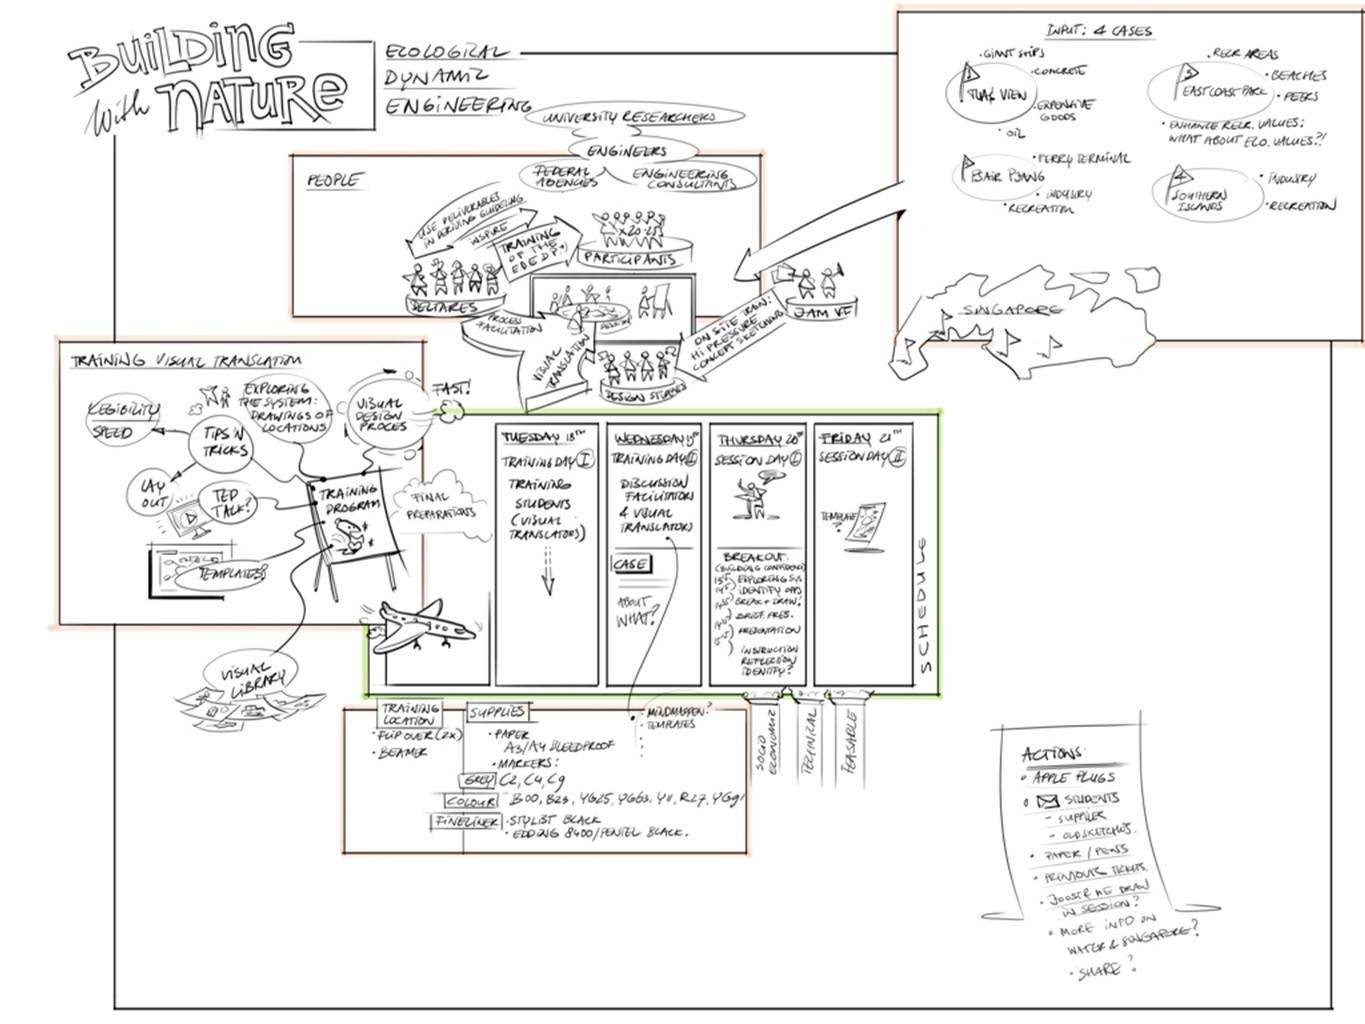 BUILDING
With NATURE
ECOLOGICAL
DYNAMIC
ENGINEERING
UNIVERSITY RESEARCHERS
ENGINEERS
FEDERAL
AGENCIES
ENGINEERING
CONSULTANTS
PEOPLE
USE DELIVERABLES
IN DERIVING GUIDELING
INSPIRE
TRAINING
OF THE
x20-25
PARTICIPANTS
DELTARES
PROCESS
FACILITATION
SESSION
VISUAL
TRANSLATION
ON SITE TRAIN:
HI PRESSURE
CONCEPT SKETCHING
JAM VT
DESIGN STUDIES
INPUT: 4 CASES
• GIANT SHIPS
• CONCRETE
1
TUAS VIEW
• EXPENSIVE
GOODS
• OIL
• FERRY TERMINAL
PSAIR PJANG
• INDUSTRY
RECREATION
• RECR AREAS
• BEACHES
3
EASTCOAST PARK
• PEERS
• ENHANCE RECR. VALUES:
WHAT ABOUT ECO. VALUES?!
4
SOUTHERN
ISLANDS
• INDUSTRY
• RECREATION
SINGAPORE
TRAINING VISUAL TRANSLATION
LEGIBILITY
SPEED
EXPLORING
THE SYSTEM:
DRAWINGS OF
LOCATIONS
VISUAL
DESIGN
PROCES
FAST!
TIPS'N
TRICKS
LAY
OUT
TED
TALK?
TEMPLATES
TRAINING
PROGRAM
FINAL
PREPARATIONS
VISUAL
LIBRARY
TUESDAY 18TH
TRAINING DAY I
TRAINING
STUDENTS
(VISUAL
TRANSLATORS)
WEDNESDAY 19TH
TRAINING DAY II
DISCUSSION
FACILITATORS
& VISUAL
TRANSLATORS
CASE
ABOUT
WHAT?
THURSDAY 20TH
SESSION DAY I
BREAKOUT:
(BUILDING CONFIDENCE)
EXPLORING SYS
IDENTIFY OPPS
BREAK + DRAW!
BRIEF. PRES.
PRESENTATION
INSTRUCTION
REFLECTION
IDENTIFY?
FRIDAY 21TH
SESSION DAY II
TEMPLATE
?
SCHEDULE
TRAINING
LOCATION
• FLIPOVER (2X)
• BEAMER
SUPPLIES
• PAPER
A3/A4 BLEEDPROOF
• MARKERS:
GREY C2, C4, C9
COLOUR B00, B23, YG25, YG63, Y11, R27, YG91
FINELINER • STYLIST BLACK
• EDDING 8400/PENTEL BLACK.
• MINDMAPPEN?
• TEMPLATES
SOCIO
ECONOMIC
TECHNICAL
FEASABLE
ACTIONS:
• APPLE PLUGS
• STUDENTS
- SUPPLIER
- OLD SKETCHES.
• PAPER / PENS
• PRINTOUTS TICKETS.
• JOOST & ME DRAW
IN SESSION?
• MORE INFO ON
WATER & SINGAPORE?
• SHARE?